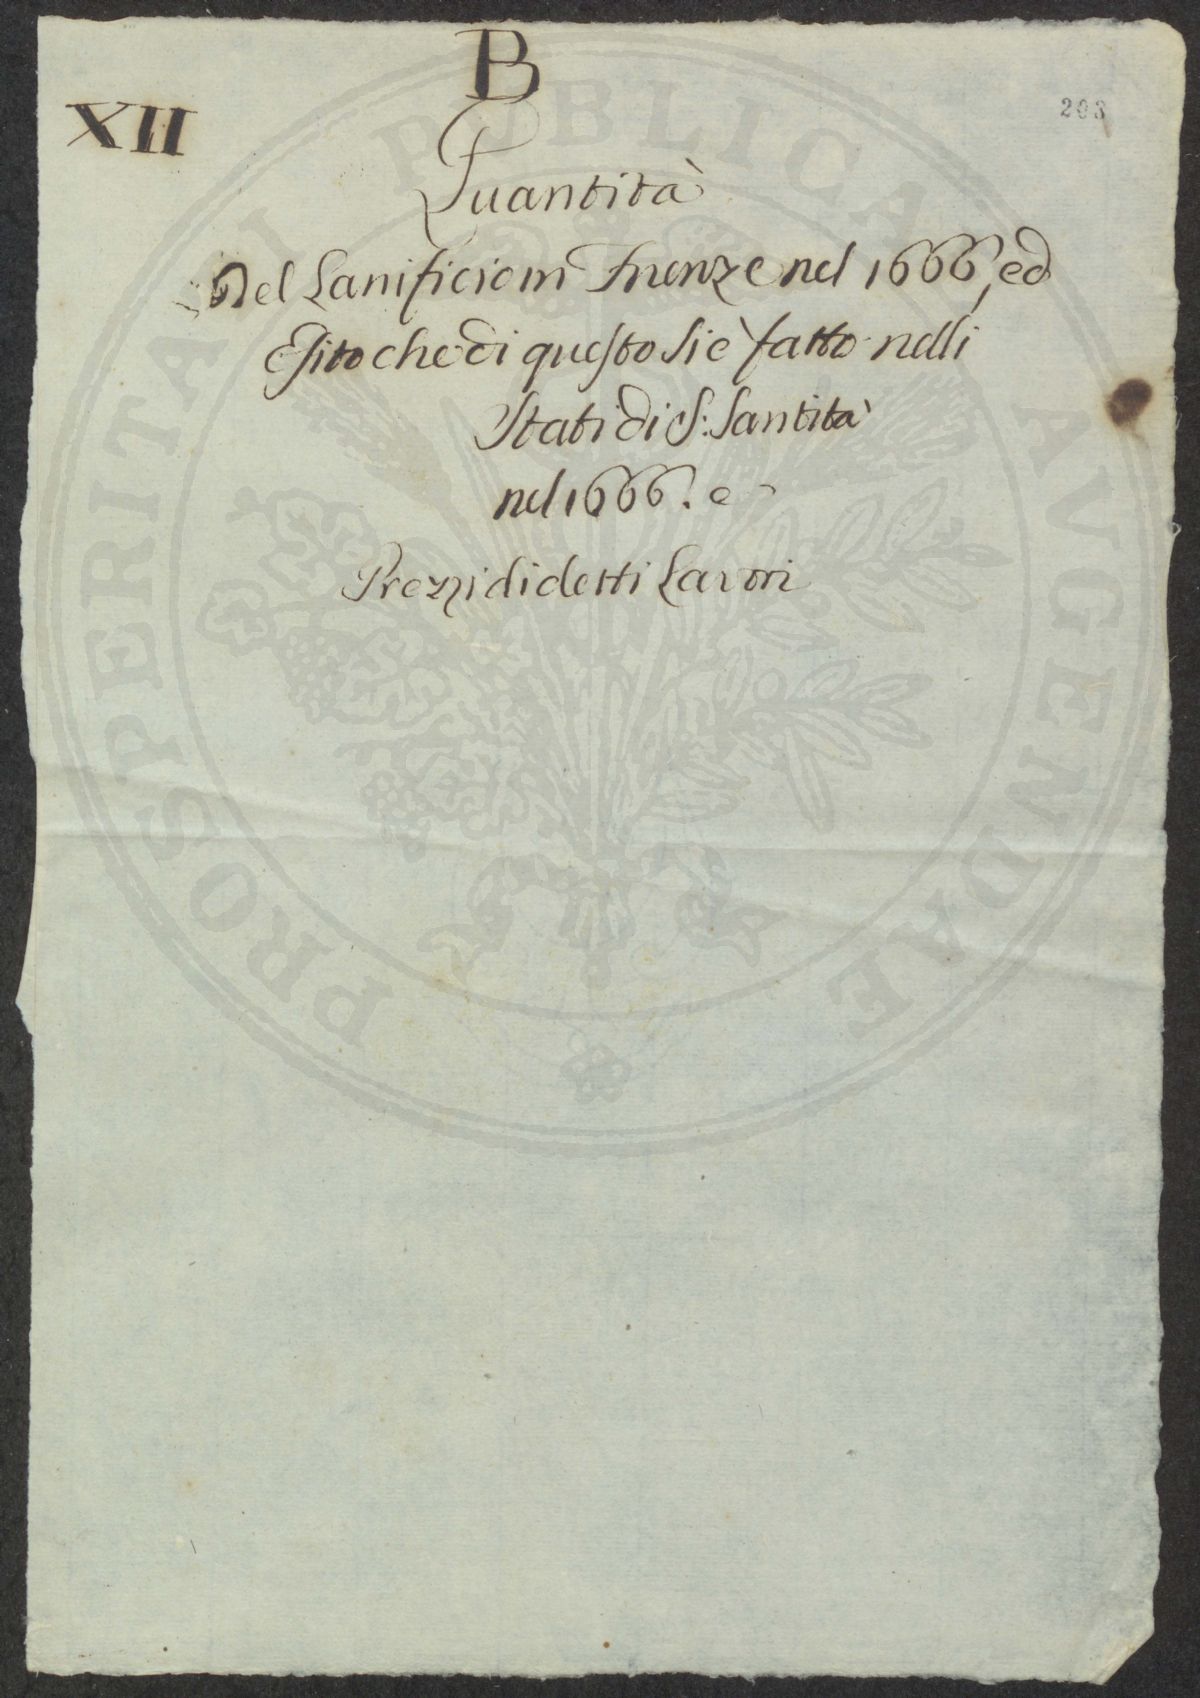 B
XII
203
Quantità
Del Lanificio in Firenze nel 1666, ed
Esito che di questo si è fatto nelli
Stati di S: Santità
nel 1666. e
Prezzi di detti Lavori
PROSPERITATI PUBLICAE AVGENDAE